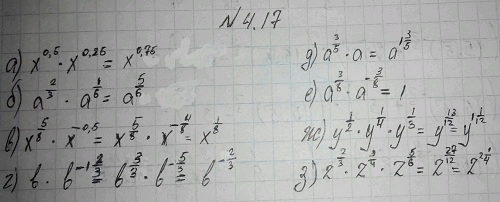 №4.17
а) x^0,5 · x^0,25 = x^0,75
б) a^(2/3) · a^(1/6) = a^(5/6)
в) x^(5/8) · x^(-0,5) = x^(5/8) · x^(-4/8) = x^(1/8)
г) b · b^(-1 2/3) = b^(3/3) · b^(-5/3) = b^(-2/3)
д) a^(3/5) · a = a^(1 3/5)
е) a^(3/8) · a^(-3/8) = 1
ж) y^(1/2) · y^(1/4) · y^(1/3) = y^(13/12) = y^(1 1/12)
з) z^(2/3) · z^(3/4) · z^(5/6) = z^(27/12) = z^(2 1/4)